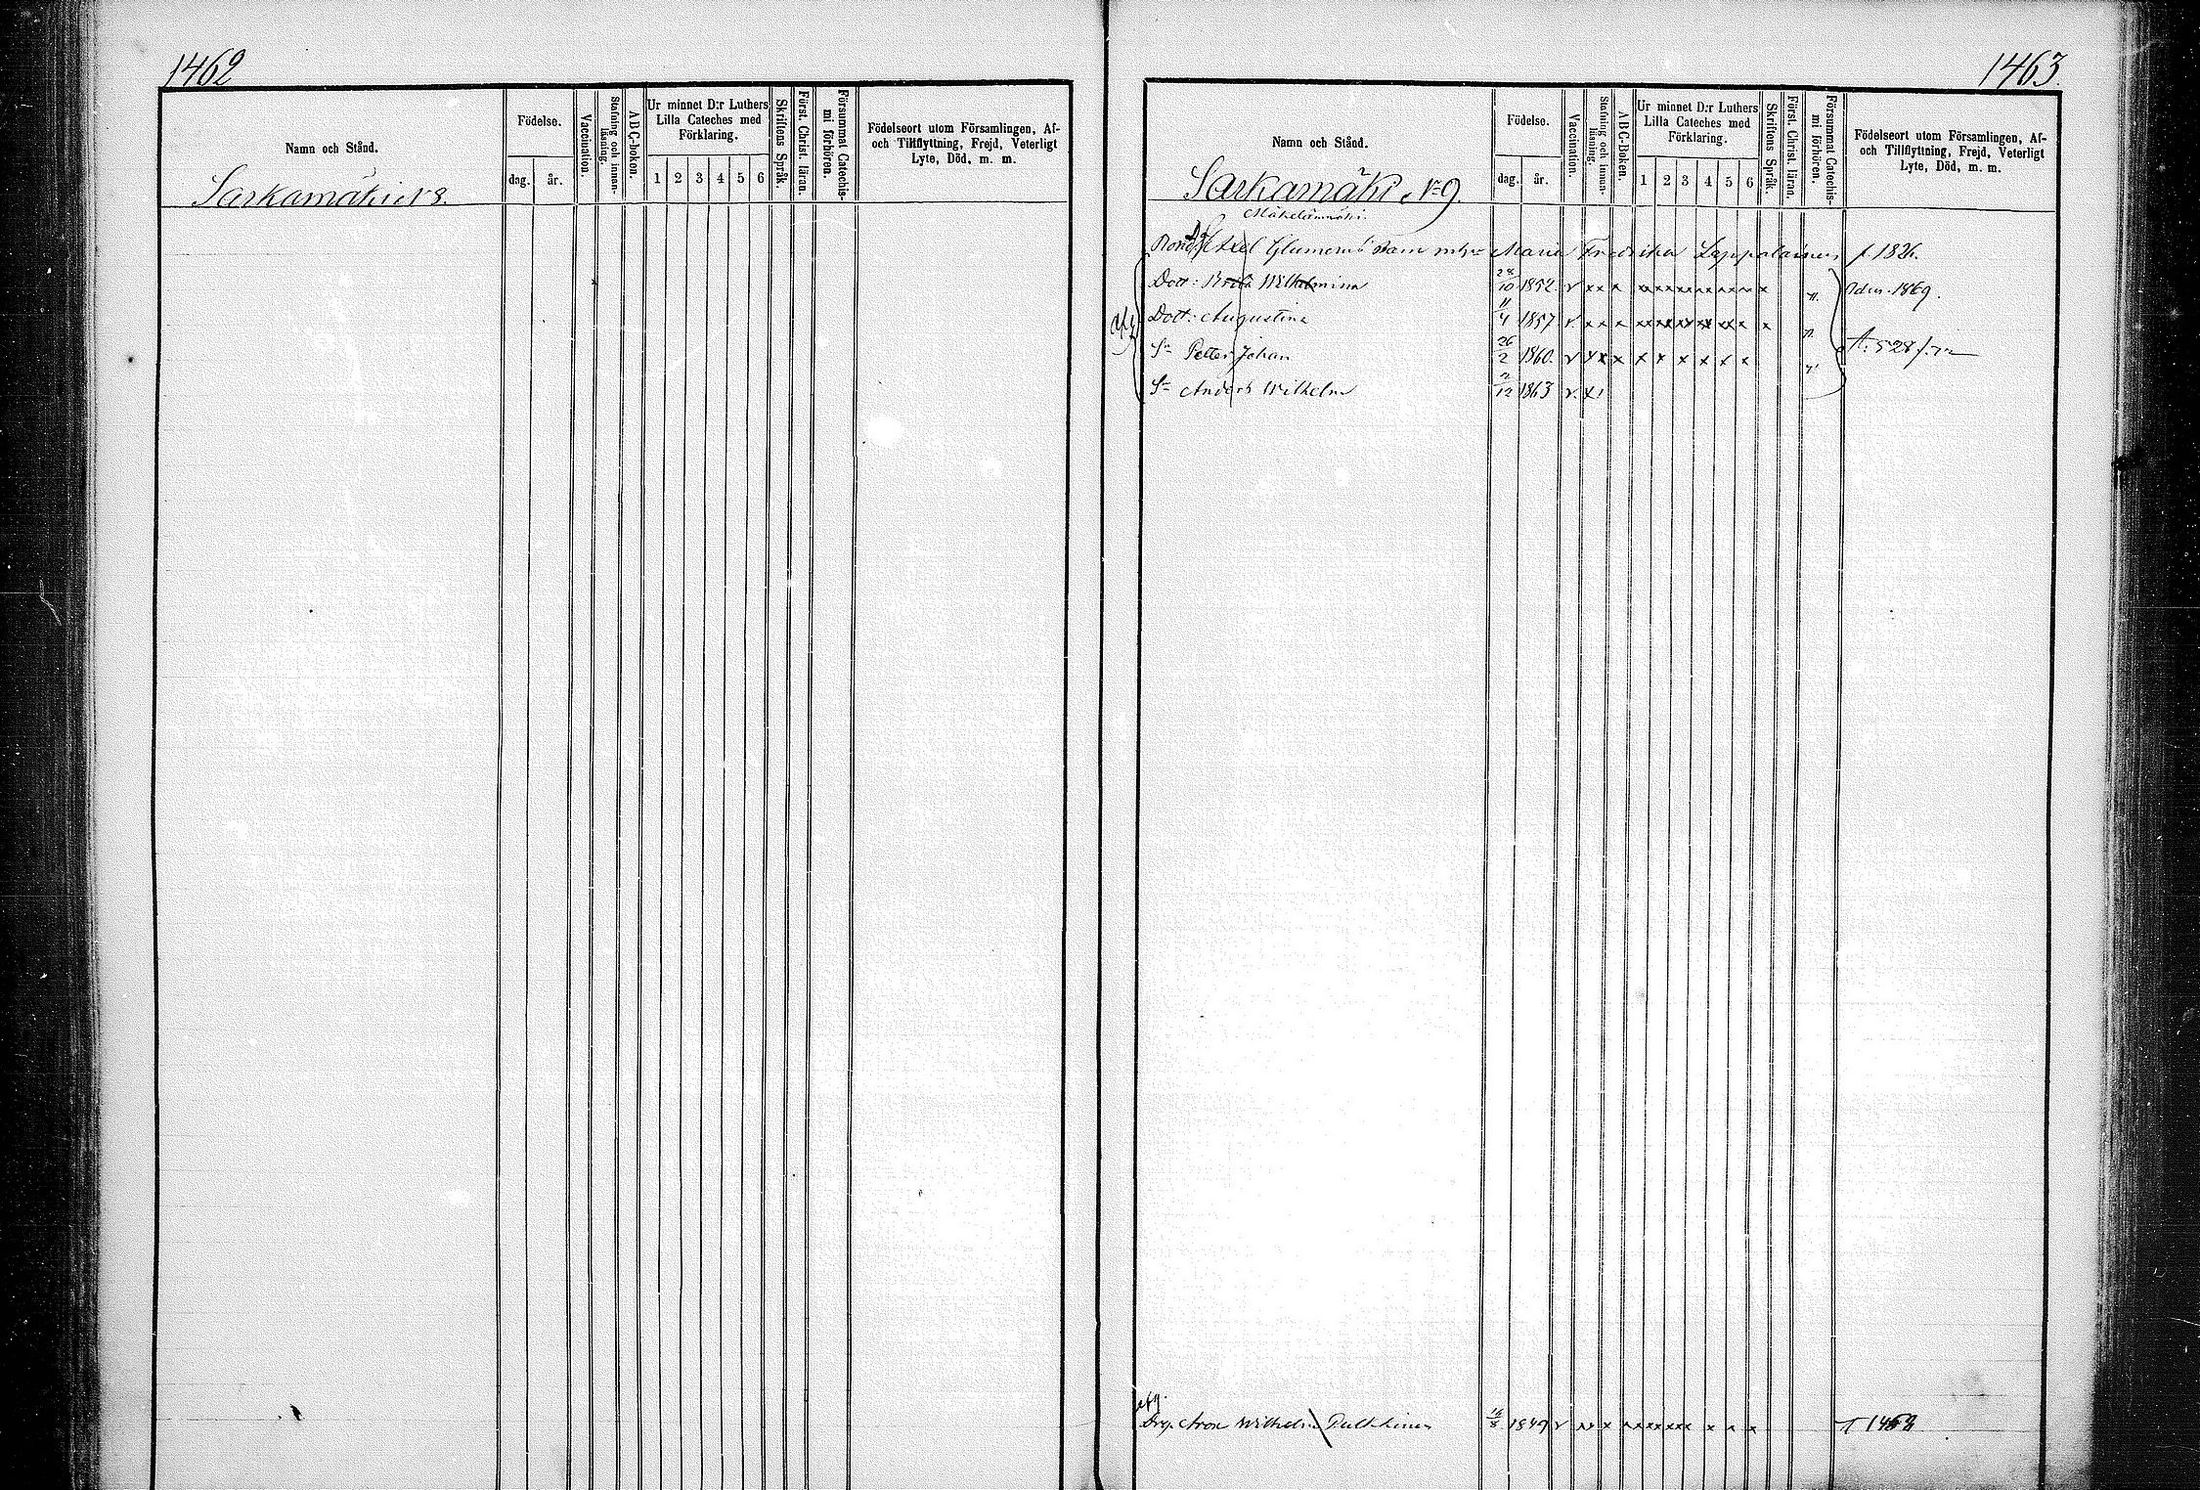 1462
Namn och Stånd.
Födelse.
dag.
år.
Vaccination.
Stafning och innan-läsning.
ABC-boken.
Ur minnet D:r Luthers
Lilla Cateches med
Förklaring.
1 2 3 4 5 6
Skriftens Språk.
Först. Christ. läran.
Försummat Catechis-
mi förhören.
Födelseort utom Församlingen, Af-
och Tillflyttning, Frejd, Veterligt
Lyte, Död, m. m.
Sarkamäki N 8.
1463
Namn och Stånd.
Födelse.
dag.
år.
Vaccination.
Stafning och innan-läsning.
ABC-Boken.
Ur minnet D:r Luthers
Lilla Cateches med
Förklaring.
1 2 3 4 5 6
Skriftens Språk.
Först. Christ. läran.
Försummat Catechis-
mi förhören.
Födelseort utom Församlingen, Af-
och Tillflyttning, Frejd, Veterligt
Lyte, Död, m. m.
Sarkamäki N 9.
Axel Maria Fredrika Lappalainen f. 1826.
Dott: Wilhelmina 28/10 1852. v x x x x x x x x x x x 1869.
Dott: Augustina 11/4 1857 v. x x x x x x x x x x
Sn Petter Johan 26/2 1860. v x x x x x x x x x 528
Sn Anders Wilhelm 2/12 1863 v. x
Aron Wilhelm Pulkkinen 16/8 1849 v x x x x x x x x x x